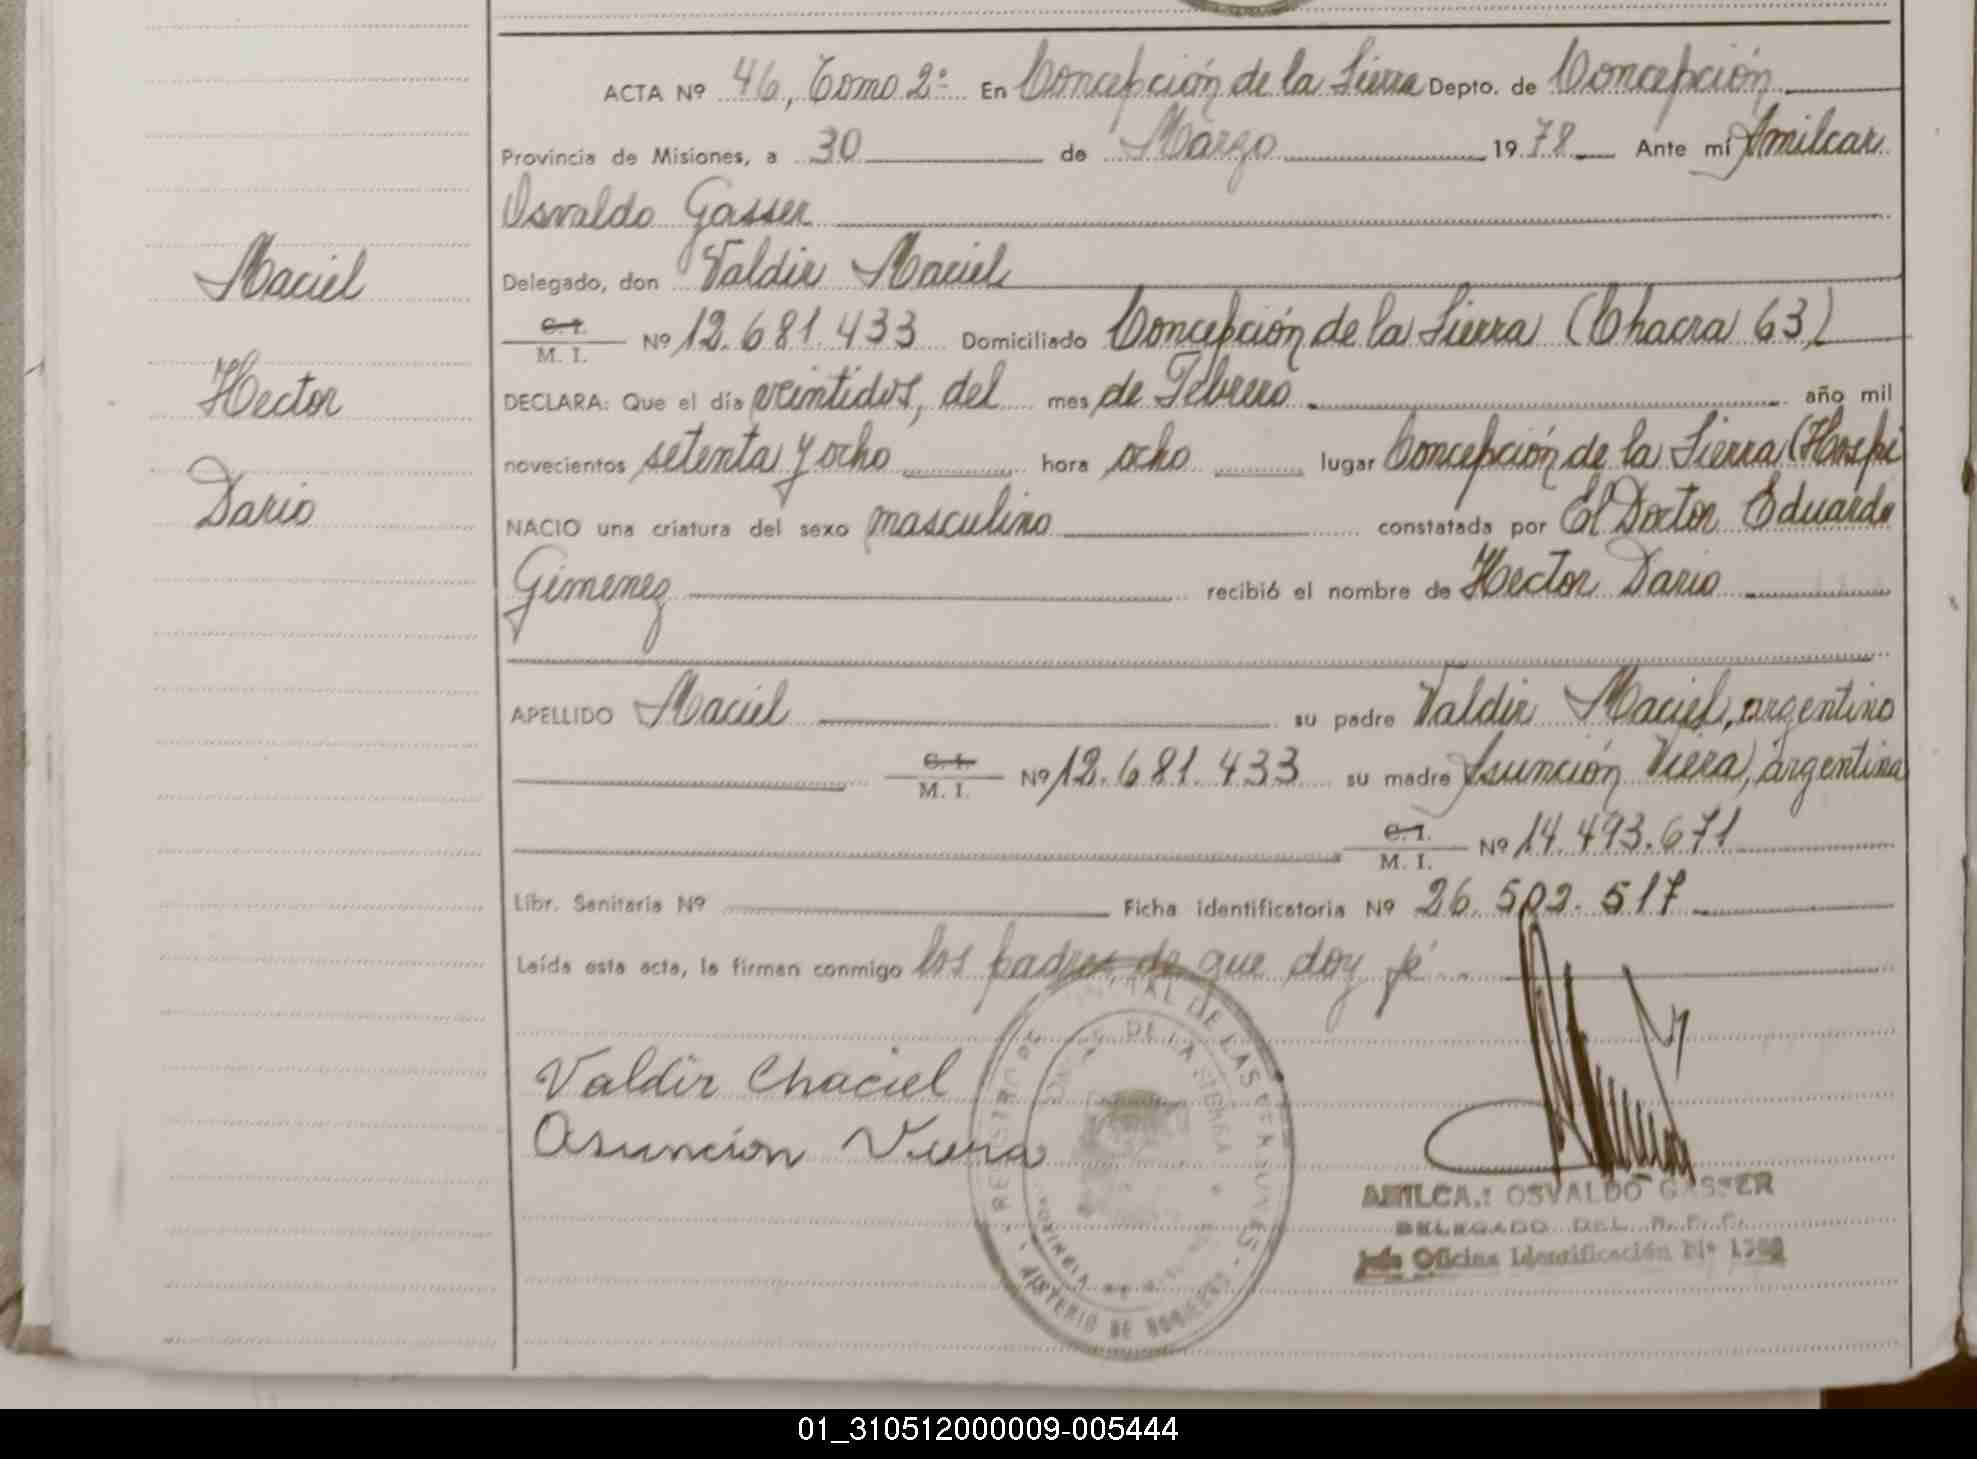 ACTA Nº 46, Tomo 2º En Concepción de la Sierra Depto. de Concepción
Provincia de Misiones, a 30 de Marzo 1978 Ante mí Amilcar
Osvaldo Gasser
Delegado, don Valdir Maciel
C. I.
M. I. Nº 12.681.433 Domiciliado Concepción de la Sierra (Chacra 63)
DECLARA: Que el día veintidos, del mes de Febrero año mil
novecientos setenta y ocho hora ocho lugar Concepción de la Sierra (Hospi
NACIO una criatura del sexo masculino constatada por El Doctor Eduardo
Gimenez recibió el nombre de Hector Dario
APELLIDO Maciel su padre Valdir Maciel, argentino
C. I.
M. I. Nº 12.681.433 su madre Asunción Viera, argentina
C. I.
M. I. Nº 14.493.671
Libr. Sanitaria Nº Ficha identificatoria Nº 26.502.517
Leída esta acta, la firman conmigo los padres, de que doy fé
Maciel
Hector
Dario
Valdir Chaciel
Asunción Viera
DE LAS PERSONAS
DE LA SIERRA
MINISTERIO DE GOBIERNO
OSVALDO GASSER
DELEGADO DEL R. P. P.
Jefe Oficina Identificación Nº
01_310512000009-005444